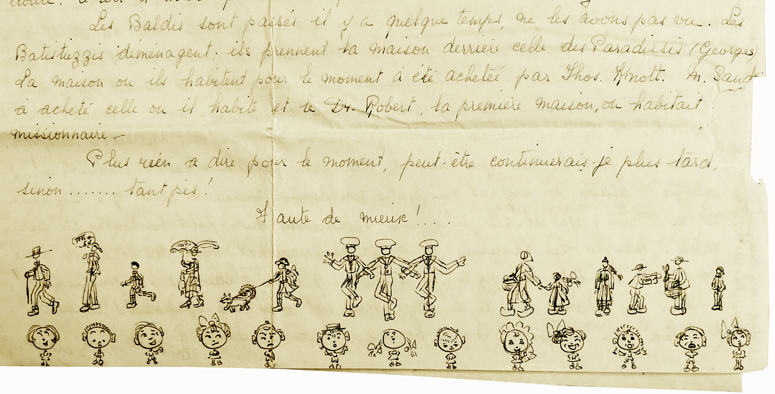 Les Baldis sont passés il y a quelque temps ne les avons pas vu. Les
Batistuzzis déménagent. ils prennent la maison derrière celle des Paradillis (Georges)
La maison ou ils habitent pour le moment à été achetée par Thos. Knott. M. Saud
à acheté celle ou il habite et le Dr. Robert, la première maison, ou habitait
missionnaire —
Plus rien a dire pour le moment, peut-être continuerais-je plus tard,
sinon ....... tant pis!
Faute de mieux! ....